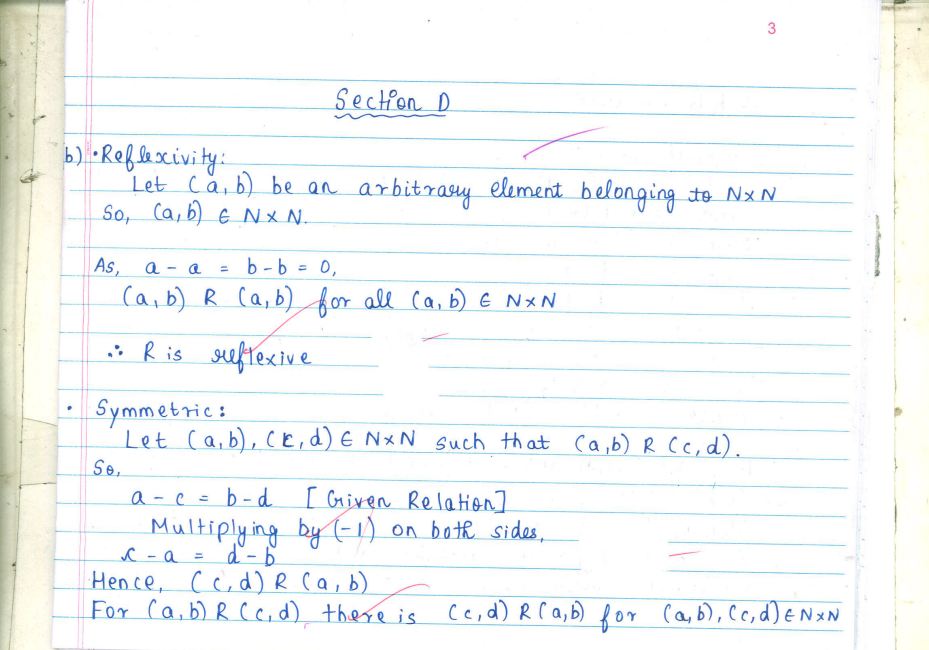 3
Section D
b) • Reflexivity:
Let (a, b) be an arbitrary element belonging to N×N
So, (a, b) ∈ N × N.
As, a - a = b - b = 0,
(a, b) R (a, b) for all (a, b) ∈ N×N
∴ R is reflexive
• Symmetric:
Let (a, b), (c, d) ∈ N×N such that (a, b) R (c, d).
So,
a - c = b - d [Given Relation]
Multiplying by (-1) on both sides,
c - a = d - b
Hence, (c, d) R (a, b)
For (a, b) R (c, d) there is (c, d) R (a, b) for (a, b), (c, d) ∈ N×N